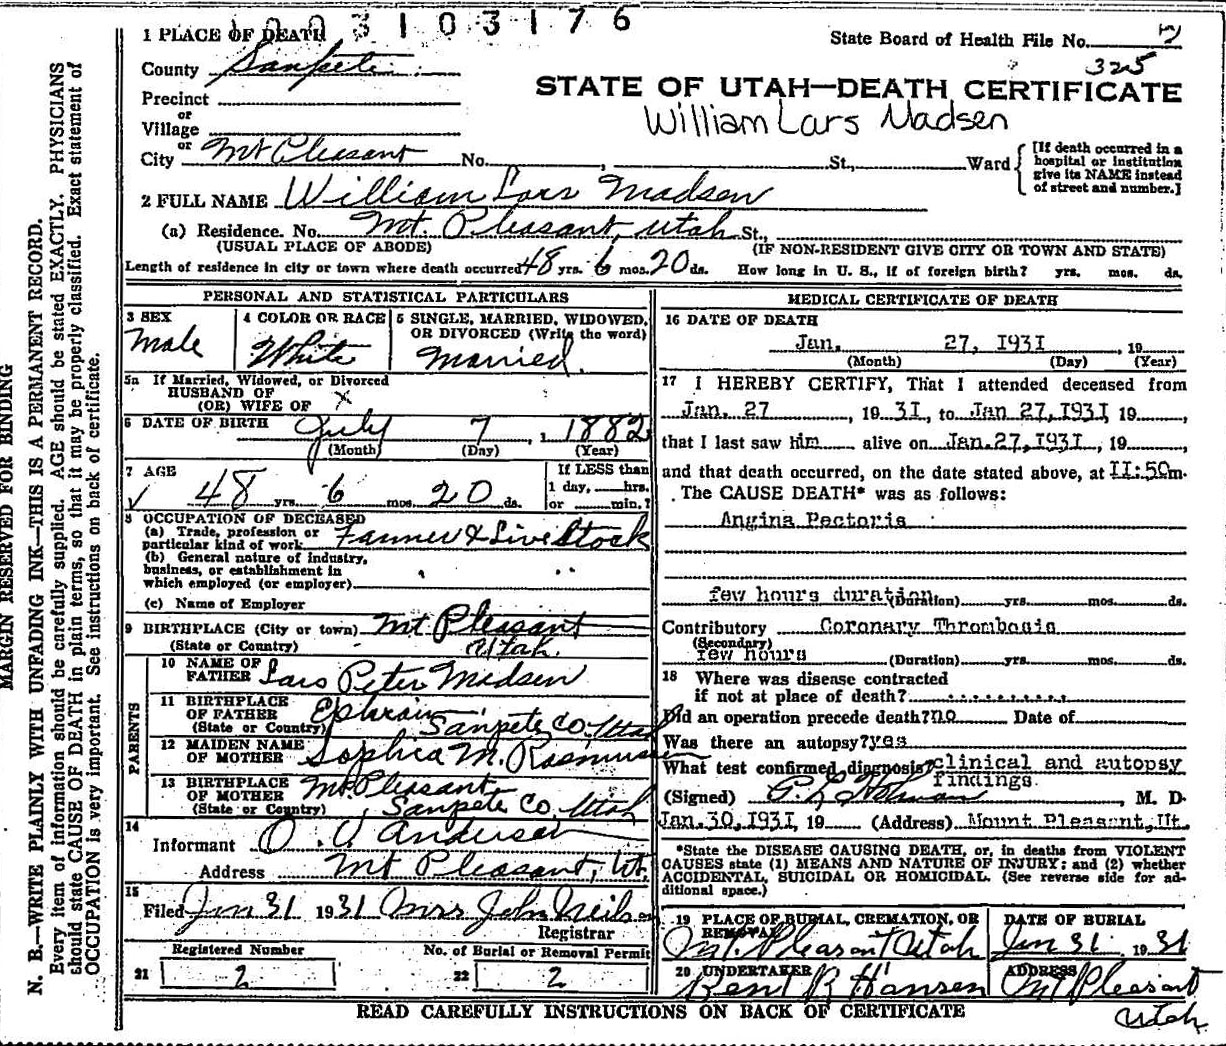 1003103176
1 PLACE OF DEATH
State Board of Health File No. 2
325
County Sanpete
STATE OF UTAH—DEATH CERTIFICATE
Precinct
or
Village
William Lars Madsen
or
City Mt Pleasant No. , St., Ward
[If death occurred in a hospital or institution give its NAME instead of street and number.]
2 FULL NAME William Lars Madsen
(a) Residence. No. Mt. Pleasant, Utah St.,
(USUAL PLACE OF ABODE) (IF NON-RESIDENT GIVE CITY OR TOWN AND STATE)
Length of residence in city or town where death occurred 48 yrs. 6 mos. 20 ds. How long in U. S., if of foreign birth? yrs. mos. ds.
PERSONAL AND STATISTICAL PARTICULARS
3 SEX
Male
4 COLOR OR RACE
White
5 SINGLE, MARRIED, WIDOWED,
OR DIVORCED (Write the word)
Married.
5a If Married, Widowed, or Divorced
HUSBAND OF
(OR) WIFE OF X
6 DATE OF BIRTH July 7, 1882
(Month) (Day) (Year)
7 AGE
48 yrs. 6 mos. 20 ds.
If LESS than
1 day, hrs.
or min.?
8 OCCUPATION OF DECEASED
(a) Trade, profession or
particular kind of work Farmer & Live Stock
(b) General nature of industry,
business, or establishment in
which employed (or employer)
(c) Name of Employer
9 BIRTHPLACE (City or town) Mt Pleasant
(State or Country) Utah.
PARENTS
10 NAME OF
FATHER Lars Peter Madsen
11 BIRTHPLACE
OF FATHER Ephraim
(State or Country) Sanpete Co. Utah
12 MAIDEN NAME
OF MOTHER Sophia M. Rasmussen
13 BIRTHPLACE
OF MOTHER Mt. Pleasant
(State or Country) Sanpete Co. Utah
14
Informant O. Anderson
Address Mt Pleasant, Ut.
15
Filed Jan 31 1931 Mrs John Neilson
Registrar
Registered Number No. of Burial or Removal Permit
21 2 22 2
MEDICAL CERTIFICATE OF DEATH
16 DATE OF DEATH
Jan. 27, 1931, 19
(Month) (Day) (Year)
17 I HEREBY CERTIFY, That I attended deceased from
Jan. 27, 1931, to Jan 27, 1931 19
that I last saw him alive on Jan. 27, 1931, 19
and that death occurred, on the date stated above, at 11:50 m.
The CAUSE DEATH* was as follows:
Angina Pectoris
few hours duration (Duration) yrs. mos. ds.
Contributory Coronary Thrombosis
(Secondary)
few hours (Duration) yrs. mos. ds.
18 Where was disease contracted
if not at place of death?
Did an operation precede death? no Date of
Was there an autopsy? yes
What test confirmed diagnosis? clinical and autopsy
findings
(Signed) P. L. Holman, M. D.
Jan. 30, 1931, 19 (Address) Mount Pleasant, Ut.
*State the DISEASE CAUSING DEATH, or, in deaths from VIOLENT
CAUSES state (1) MEANS AND NATURE OF INJURY; and (2) whether
ACCIDENTAL, SUICIDAL OR HOMICIDAL. (See reverse side for ad-
ditional space.)
19 PLACE OF BURIAL, CREMATION, OR
REMOVAL
Mt. Pleasant Utah
DATE OF BURIAL
Jan 31 1931
20 UNDERTAKER
Kent R Hansen
ADDRESS
Mt Pleasant
Utah
READ CAREFULLY INSTRUCTIONS ON BACK OF CERTIFICATE
MARGIN RESERVED FOR BINDING
N. B.—WRITE PLAINLY WITH UNFADING INK—THIS IS A PERMANENT RECORD.
Every item of information should be carefully supplied. AGE should be stated EXACTLY. PHYSICIANS
should state CAUSE OF DEATH in plain terms, so that it may be properly classified. Exact statement of
OCCUPATION is very important. See instructions on back of certificate.